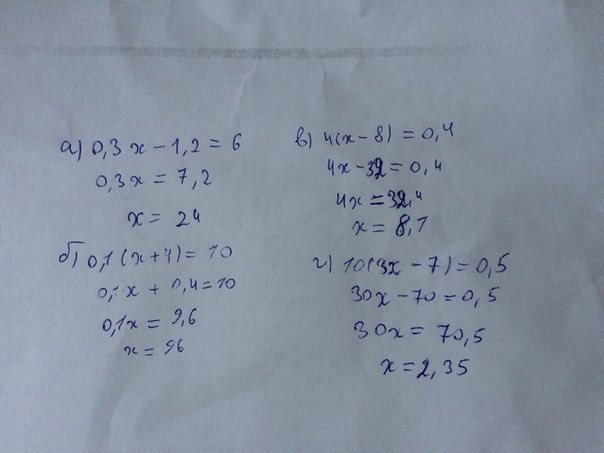 а) 0,3x - 1,2 = 6
0,3x = 7,2
x = 24
б) 0,1(x+4) = 10
0,1x + 0,4 = 10
0,1x = 9,6
x = 96
в) 4(x-8) = 0,4
4x - 32 = 0,4
4x = 32,4
x = 8,1
г) 10(3x - 7) = 0,5
30x - 70 = 0,5
30x = 70,5
x = 2,35